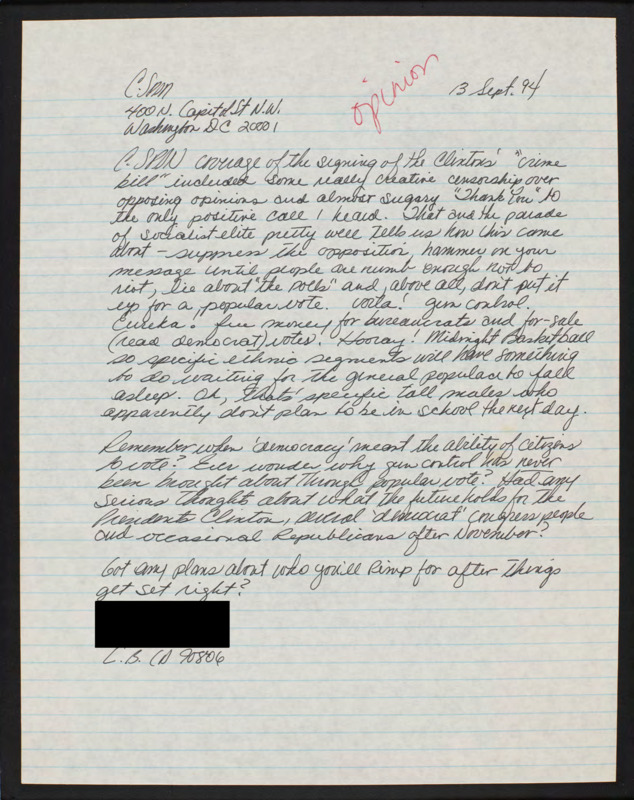 C-SPAN
opinion
13 Sept. 94
400 N. Capitol St N.W.
Washington DC 20001
C-SPAN coverage of the signing of the Clintons' "crime
bill" included some really creative censorship over
opposing opinions and almost sugary "Thank You" to
the only positive call I heard. That and the parade
of socialist elite pretty well tells us how this came
about – suppress the opposition, hammer on your
message until people are numb enough not to
riot, lie about "the polls" and, above all, don't put it
up for a popular vote. Voila! gun control.
Eureka! free money for bureaucrats and for-sale
(read democrat) votes. Hooray! Midnight Basketball
so specific ethnic segments will have something
to do waiting for the general populace to fall
asleep. Oh, that's specific tall males who
apparently don't plan to be in school the next day.
Remember when 'democracy' meant the ability of citizens
to vote? Ever wonder why gun control has never
been brought about through popular vote? Had any
serious thoughts about what the future holds for the
Presidents Clinton, several 'democrat' congress people
and occasional Republicans after November?
Got any plans about who you'll Pimp for after things
get set right?
L.B. CA 90806